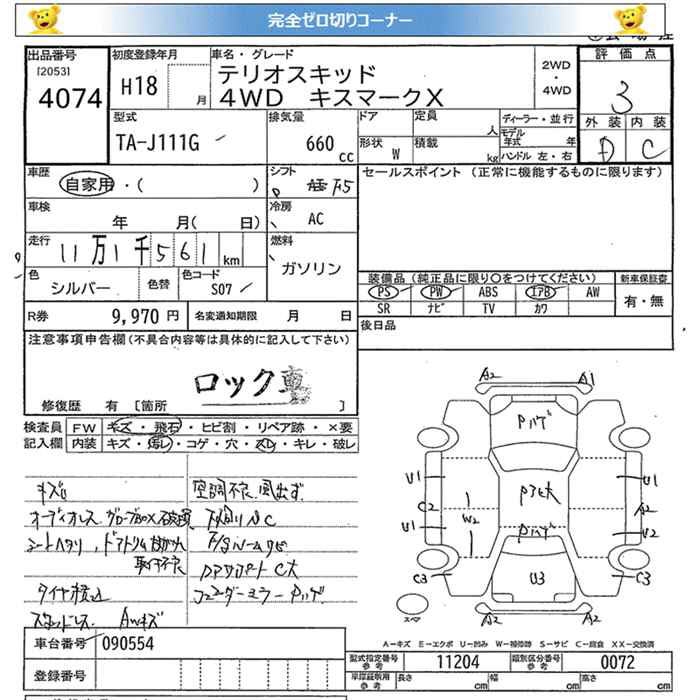 完全ゼロ切りコーナー
出品番号
[2053]
4074
初度登録年月
H18 月
車名・グレード
テリオスキッド
4WD キスマークX
2WD
・
4WD
評価点
3
外装 内装
D C
型式
TA-J111G
排気量
660 cc
ドア
定員
人
形状
W
積載
kg
ディーラー・並行
モデル年式 年
ハンドル 左・右
車歴
自家用・( )
シフト
F5
セールスポイント (正常に機能するものに限ります)
車検
年 月( 日)
冷房
AC
走行
11万1千561km
燃料
ガソリン
色
シルバー
色替
色コード
S07
装備品 (純正品に限り○をつけてください)
PS PW ABS エアB AW
SR ナビ TV カワ
新車保証書
有・無
R券 9,970 円
名変通知期限 月 日
後日品
注意事項申告欄(不具合内容等は具体的に記入して下さい)
ロック
修復歴 有 [箇所 ]
検査員記入欄
FW キズ・飛石・ヒビ割・リペア跡・×要
内装 キズ・汚レ・コゲ・穴・スレ・キレ・破レ
キズU
空調不良 風出ず
オーディオレス グローブBOX破損
下回りSC
シートヘタリ、ドアトリム
取付不良
F/Sルームサビ
RアサポートC大
タイヤ積込
フェンダーミラーPハゲ
スタッドレス AWキズ
A2 A1
Pハゲ
U1 U1
C2 Pアレ大 A2
U1 W2 U2
Pハゲ
C3 U3 C3
スペア
A2 A2
A-キズ E-エクボ U-凹み W-補修跡 S-サビ C-腐食 XX-交換済
車台番号 090554
型式指定番号 参考 11204
類別区分番号 参考 0072
登録番号
車庫証明用 参考 長さ cm 幅 cm 高さ cm